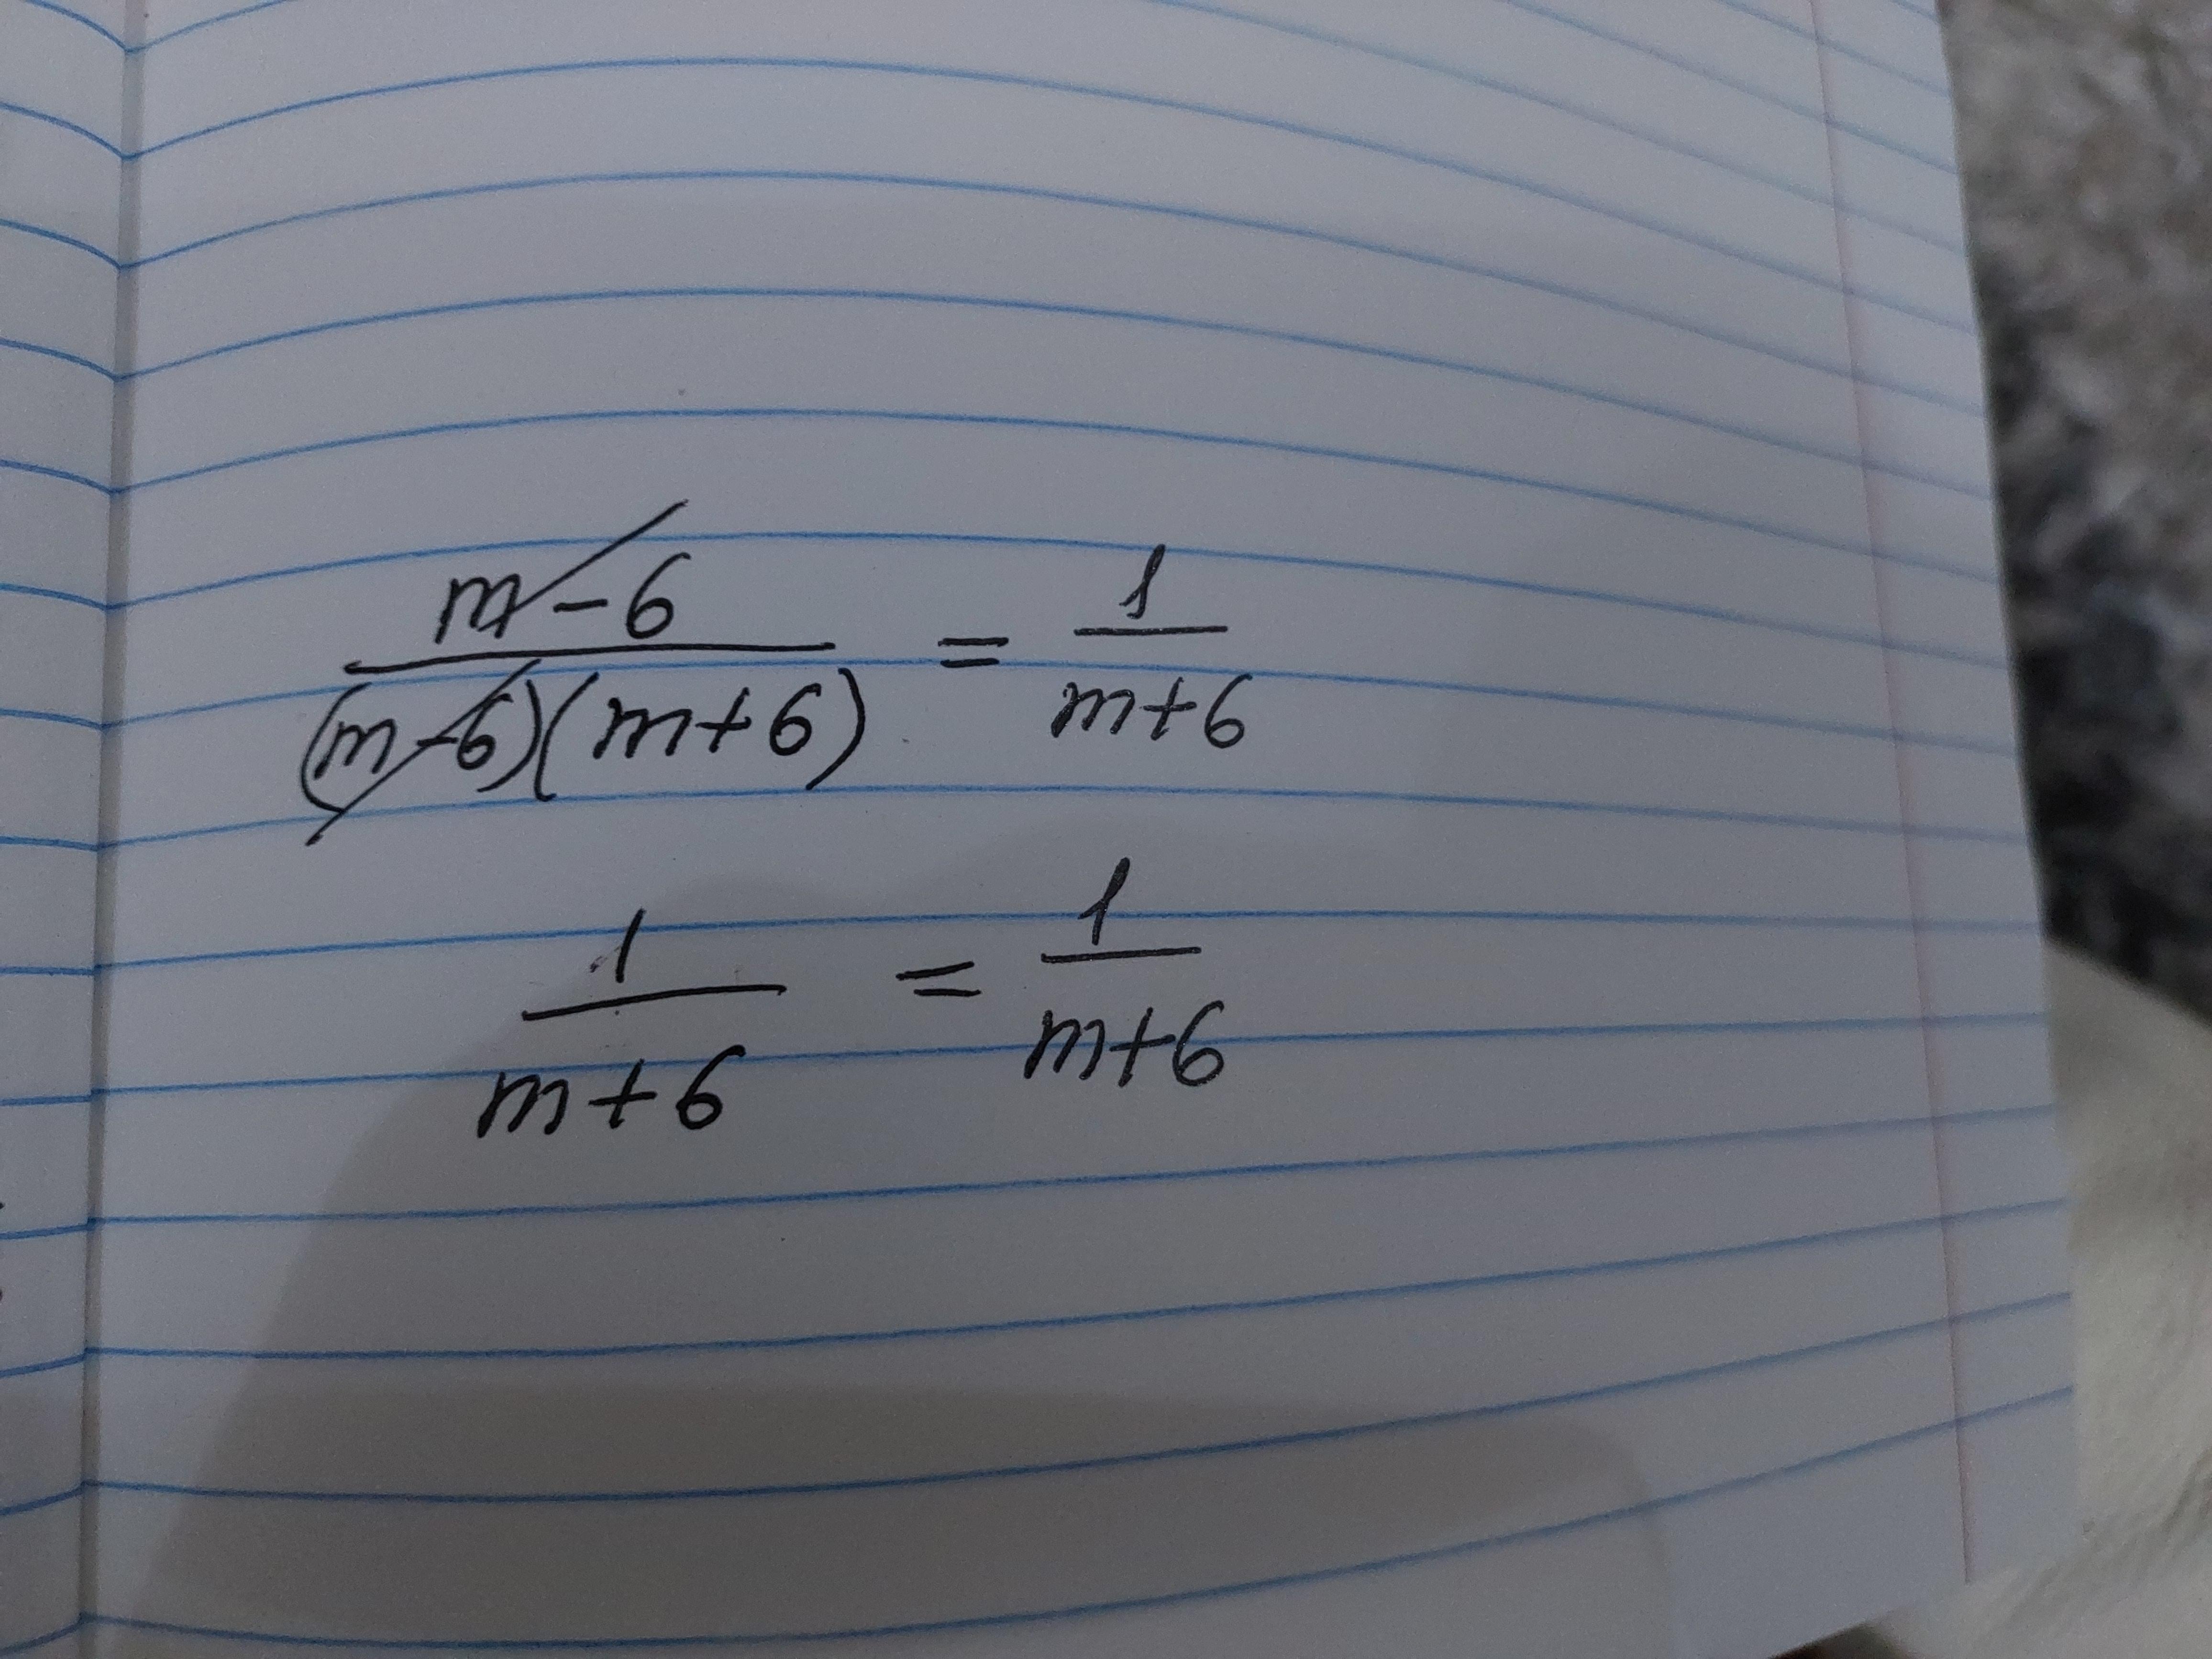 m-6/(m-6)(m+6) = 1/m+6
1/m+6 = 1/m+6